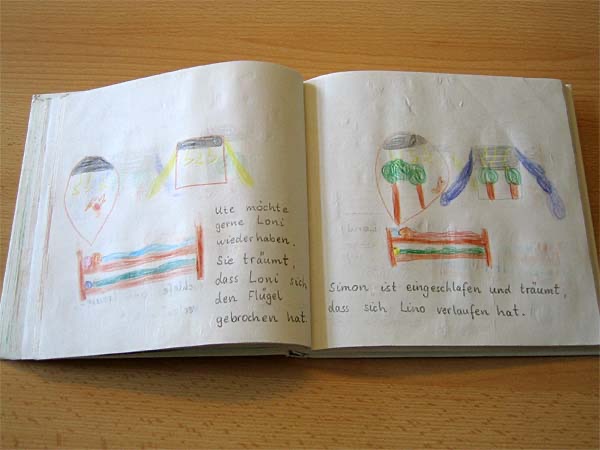 Ute möchte
gerne Loni
wiederhaben.
Sie träumt,
dass Loni sich
den Flügel
gebrochen hat.
Simon ist eingeschlafen und träumt,
dass sich Lino verlaufen hat.